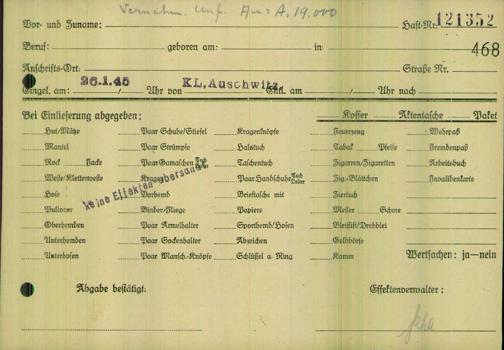 Vor- und Zuname: Haft-Nr. 121352
Beruf: geboren am: in 468
Anschrifts-Ort: Straße Nr.
Eingel. am: 26.1.45 Uhr von KL. Auschwitz Entl. am: Uhr nach
Bei Einlieferung abgegeben: Koffer Aktentasche Paket
Hut/Mütze Paar Schuhe/Stiefel Kragenknöpfe Feuerzeug Wehrpaß
Mantel Paar Strümpfe Halstuch Tabak Pfeife Fremdenpaß
Rock Jacke Paar Gamaschen Tuch Leder Taschentuch Zigarren/Zigaretten Arbeitsbuch
Weste/Kletterweste Kragen Paar Handschuhe Tuch Leder Zig.-Blättchen Invalidenkarte
Hose Vorhemd Brieftasche mit Ziertuch
keine Effekten übersandt
Pullover Binder/Fliege Papiere Messer Schere
Oberhemden Paar Ärmelhalter Sporthemd/Hosen Bleistift/Drehblei
Unterhemden Paar Sockenhalter Abzeichen Geldbörse
Unterhosen Paar Mansch.-Knöpfe Schlüssel a. Ring Kamm Wertsachen: ja—nein
Abgabe bestätigt: Effektenverwalter: